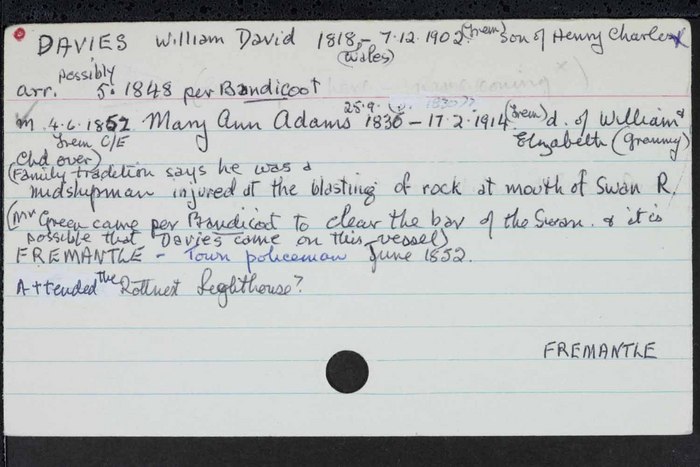 DAVIES William David 1818 - 7.12.1902 (Frem) Son of Henry Charles
(Wales)
possibly
arr. 5. 1848 per Bandicoot
25.9. (v. 1830??)
m. 4.6.1852 Mary Ann Adams 1830 - 17.2.1914 (Frem) d. of William &
Frem C/E Elizabeth (Granny)
Chd over)
(Family tradition says he was a
midshipman injured at the blasting of rock at mouth of Swan R.
(Mr Green came per Bandicoot to clear the bar of the Swan. & it is
possible that Davies came on this vessel)
FREMANTLE - Town policeman June 1852.
Attended the Rottnest Lighthouse?
FREMANTLE